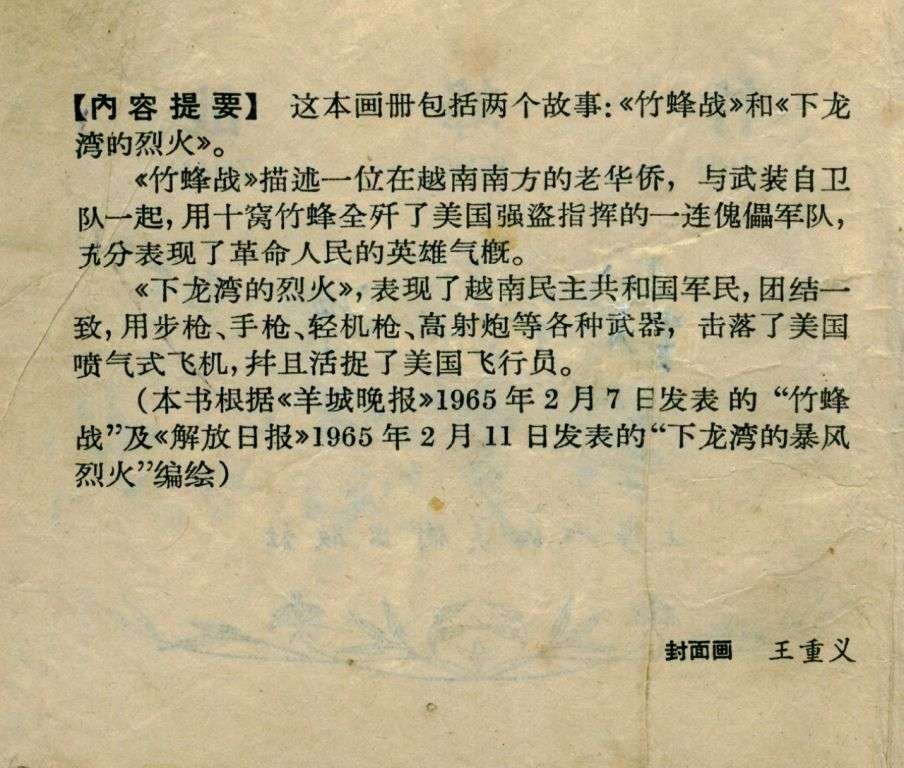 【內容提要】 这本画册包括两个故事:《竹蜂战》和《下龙
湾的烈火》。
《竹蜂战》描述一位在越南南方的老华侨，与武装自卫
队一起，用十窝竹蜂全歼了美国强盗指挥的一连傀儡军队，
充分表现了革命人民的英雄气概。
《下龙湾的烈火》，表现了越南民主共和国军民，团结一
致，用步枪、手枪、轻机枪、高射炮等各种武器，击落了美国
喷气式飞机，并且活捉了美国飞行员。
(本书根据《羊城晚报》1965年2月7日发表的“竹蜂
战”及《解放日报》1965年2月11日发表的“下龙湾的暴风
烈火”编绘)
封面画 王重义